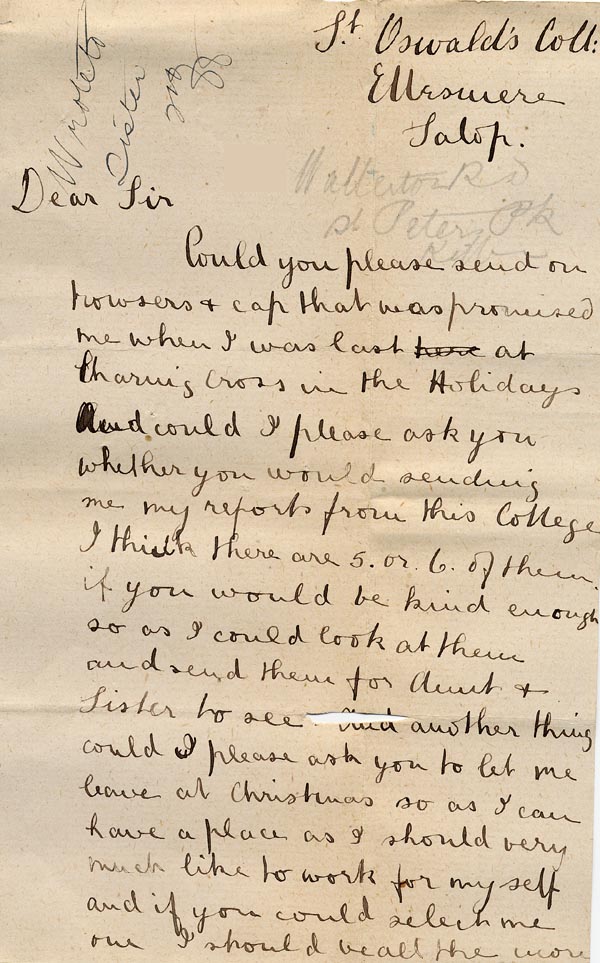 Wrote to
Sister
St Oswald's Coll:
Ellesmere
Salop.
Walterton Rd
St Peters Pk
Dear Sir
Could you please send on
trowsers & cap that was promised
me when I was last here at
Charing Cross in the Holidays
And could I please ask you
whether you would sending
me my reports from this College
I think there are 5. or. 6. of them,
if you would be kind enough
so as I could look at them
and send them for Aunt &
Sister to see And another thing
could I please ask you to let me
leave at Christmas so as I can
have a place as I should very
much like to work for my self
and if you could select me
one I should be all the more